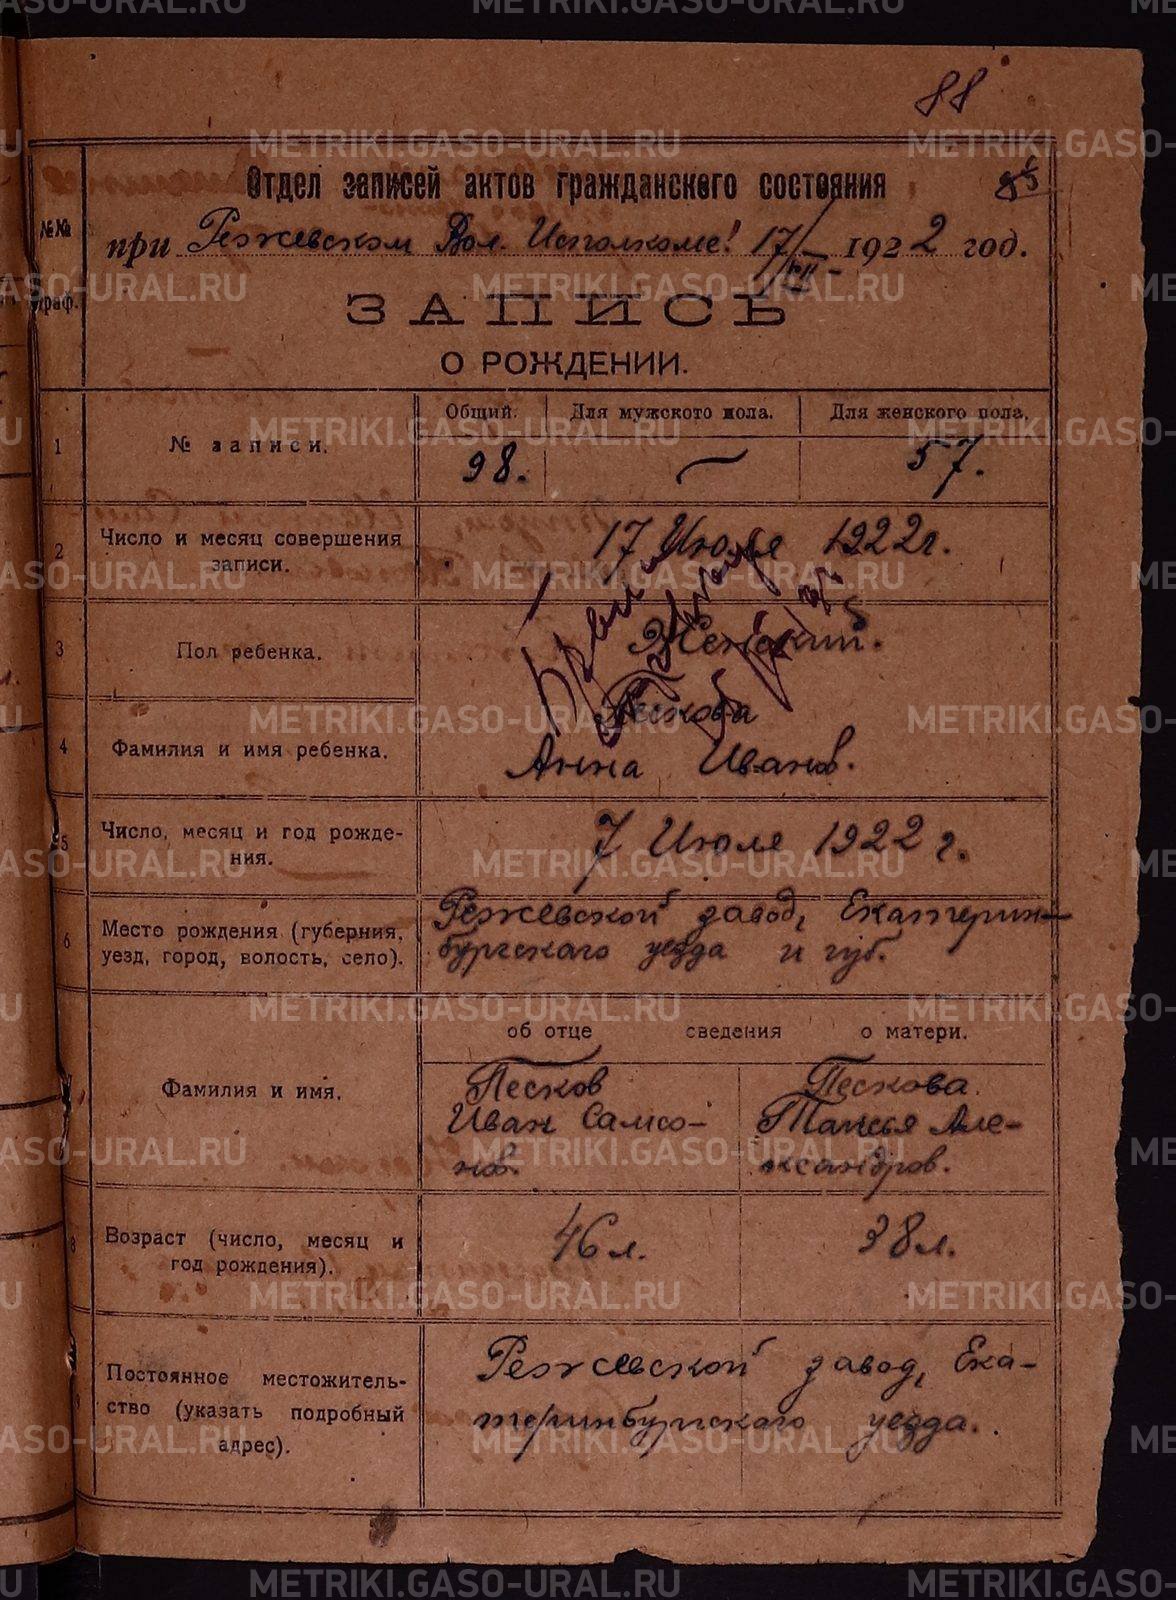 88
Отдел записей актов гражданского состояния
85
при Режевском Вол. Исполкоме! 17/VII- 1922 год.
№№
граф.
ЗАПИСЬ
О РОЖДЕНИИ.
Общий. Для мужского пола. Для женского пола.
1 № записи.
98. — 57.
2 Число и месяц совершения
записи.
17 Июля 1922 г.
3 Пол ребенка.
Женский.
4 Фамилия и имя ребенка.
Пескова
Анна Иванов.
5 Число, месяц и год рожде-
ния.
7 Июля 1922 г.
6 Место рождения (губерния,
уезд, город, волость, село).
Режевской завод, Екатерин-
бургского уезда и губ.
об отце сведения о матери.
7 Фамилия и имя.
Песков
Иван Самсо-
нов.
Пескова.
Таисья Але-
ксандров.
8 Возраст (число, месяц и
год рождения).
46 л. 38 л.
9 Постоянное местожитель-
ство (указать подробный
адрес).
Режевской завод, Ека-
теринбургского уезда.
METRIKI.GASO-URAL.RU